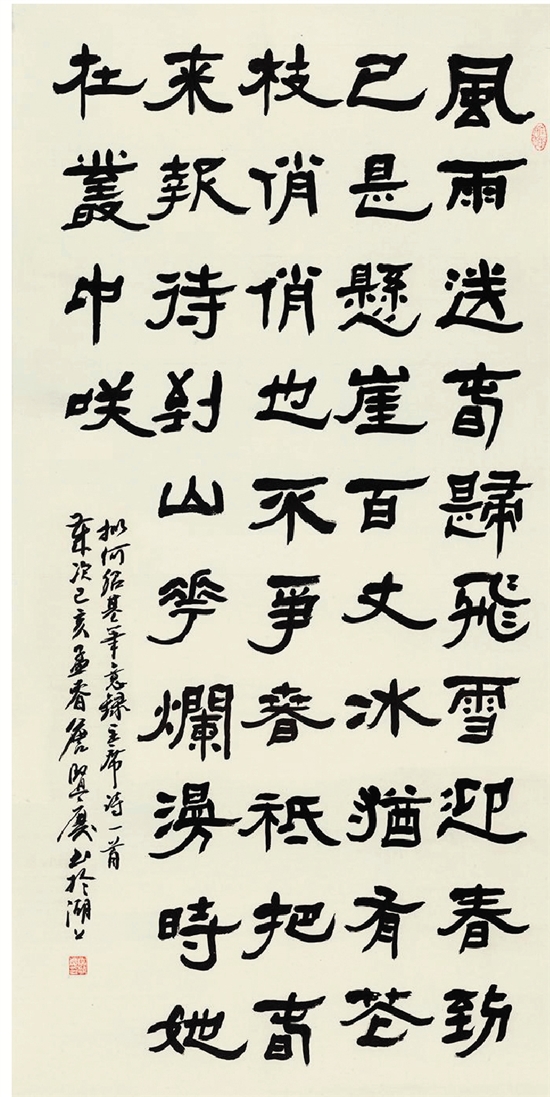 風雨送春歸飛雪迎春到
已是懸崖百丈冰猶有花
枝俏俏也不爭春祗把春
来報待到山花爛漫時她
在叢中咲
拟何绍基笔意録主席诗一首
歲次己亥孟春詹書於湖上